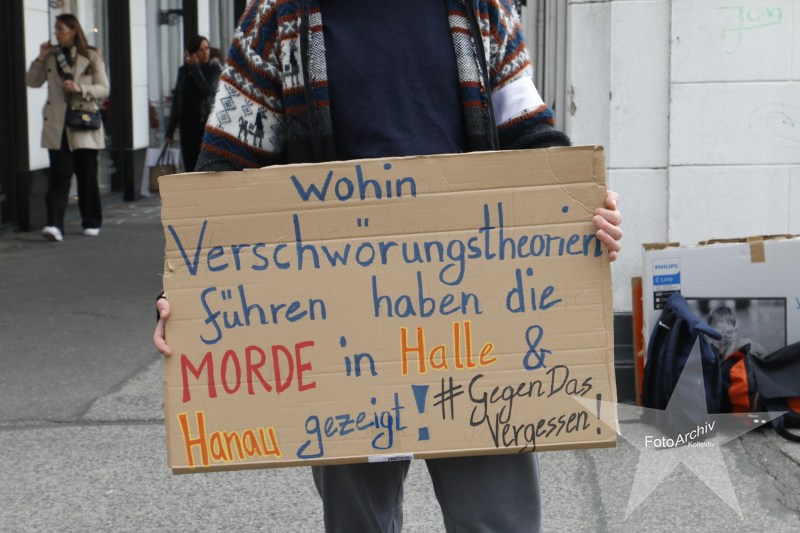 Wohin
Verschwörungstheorien
führen haben die
MORDE in Halle &
Hanau gezeigt! #GegenDas
Vergessen!
PHILIPS
E Line
FotoArchiv
Kollektiv